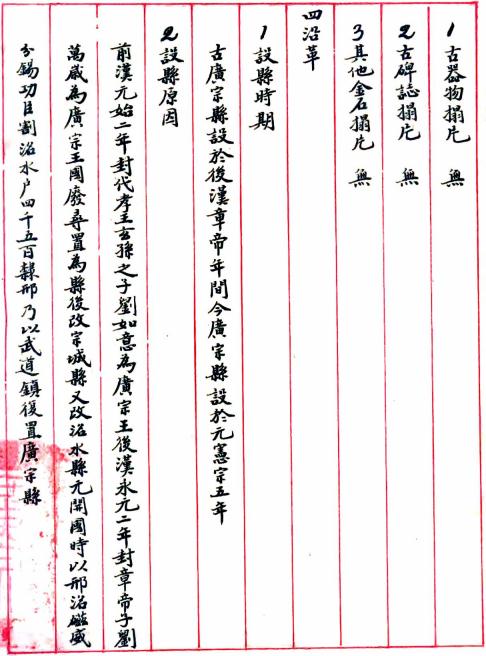 1 古器物搨片 無
2 古碑誌搨片 無
3 其他金石搨片 無
四沿革
1 設縣時期
古廣宗縣設於後漢章帝年間今廣宗縣設於元憲宗五年
2 設縣原因
前漢元始二年封代孝王玄孫之子劉如意為廣宗王後漢永元二年封章帝子劉
萬歲為廣宗王國廢尋置為縣後改宗城縣又改洺水縣元開國時以邢洺磁威
分錫功臣割洺水户四千五百隸邢乃以武道鎮復置廣宗縣